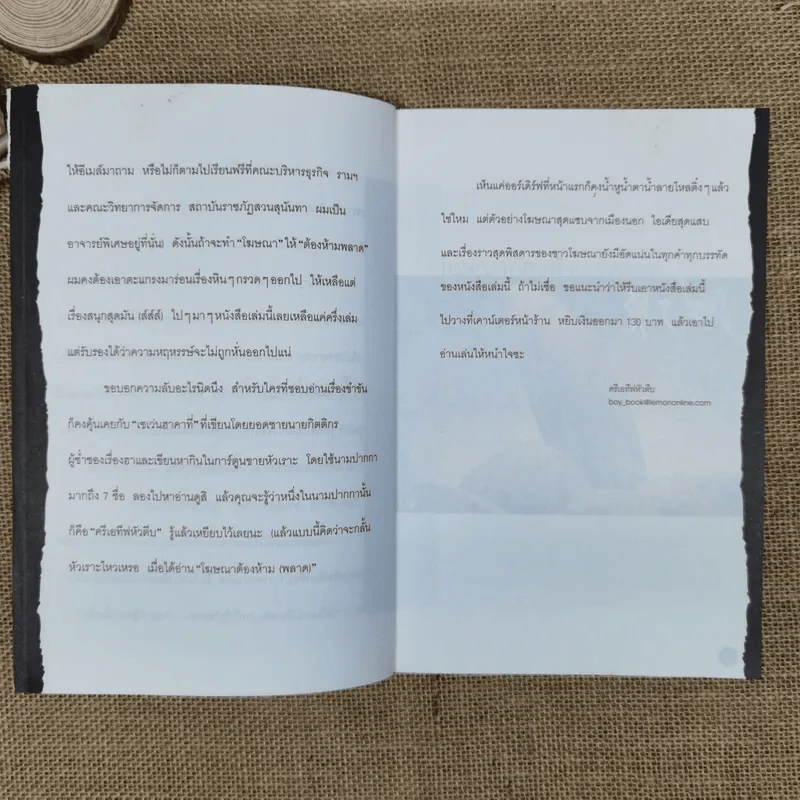 ให้อีเมล์มาถาม หรือไม่ก็ตามไปเรียนฟรีที่คณะบริหารธุรกิจ รามฯ
และคณะวิทยาการจัดการ สถาบันราชภัฏสวนสุนันทา ผมเป็น
อาจารย์พิเศษอยู่ที่นั่น) ดังนั้นถ้าจะทำ "โฆษณา" ให้ "ต้องห้ามพลาด"
ผมคงต้องเอาตะแกรงมาร่อนเรื่องหินๆ กรวดๆ ออกไป ให้เหลือแต่
เรื่องสนุกสุดมัน (ส์ส์ส์) ไปๆ มาๆ หนังสือเล่มนี้เลยเหลือแค่ครึ่งเล่ม
แต่รับรองได้ว่าความหฤหรรษ์จะไม่ถูกหั่นออกไปแน่
ขอบอกความลับอะไรนิดนึง สำหรับใครที่ชอบอ่านเรื่องขำขัน
ก็คงคุ้นเคยกับ "เซเว่นฮาคาที่" ที่เขียนโดยยอดชายนายกิตติกร
ผู้ช่ำชองเรื่องฮาและเขียนหากินในการ์ตูนขายหัวเราะ โดยใช้นามปากกา
มากถึง 7 ชื่อ ลองไปหาอ่านดูสิ แล้วคุณจะรู้ว่าหนึ่งในนามปากกานั้น
ก็คือ "ครีเอทีฟหัวตีบ" รู้แล้วเหยียบไว้เลยนะ (แล้วแบบนี้คิดว่าจะกลั้น
หัวเราะไหวเหรอ เมื่อได้อ่าน "โฆษณาต้องห้าม (พลาด)"
เห็นแค่ออร์เดิร์ฟที่หน้าแรกก็คงน้ำหูน้ำตาน้ำลายไหลติ๋งๆ แล้ว
ใช่ไหม แต่ตัวอย่างโฆษณาสุดแซบจากเมืองนอก ไอเดียสุดแสบ
และเรื่องราวสุดพิสดารของชาวโฆษณายังมีอัดแน่นในทุกคำทุกบรรทัด
ของหนังสือเล่มนี้ ถ้าไม่เชื่อ ขอแนะนำว่าให้รีบเอาหนังสือเล่มนี้
ไปวางที่เคาน์เตอร์หน้าร้าน หยิบเงินออกมา 130 บาท แล้วเอาไป
อ่านเล่นให้หนำใจซะ
ครีเอทีฟหัวตีบ
boy_book@lemononline.com